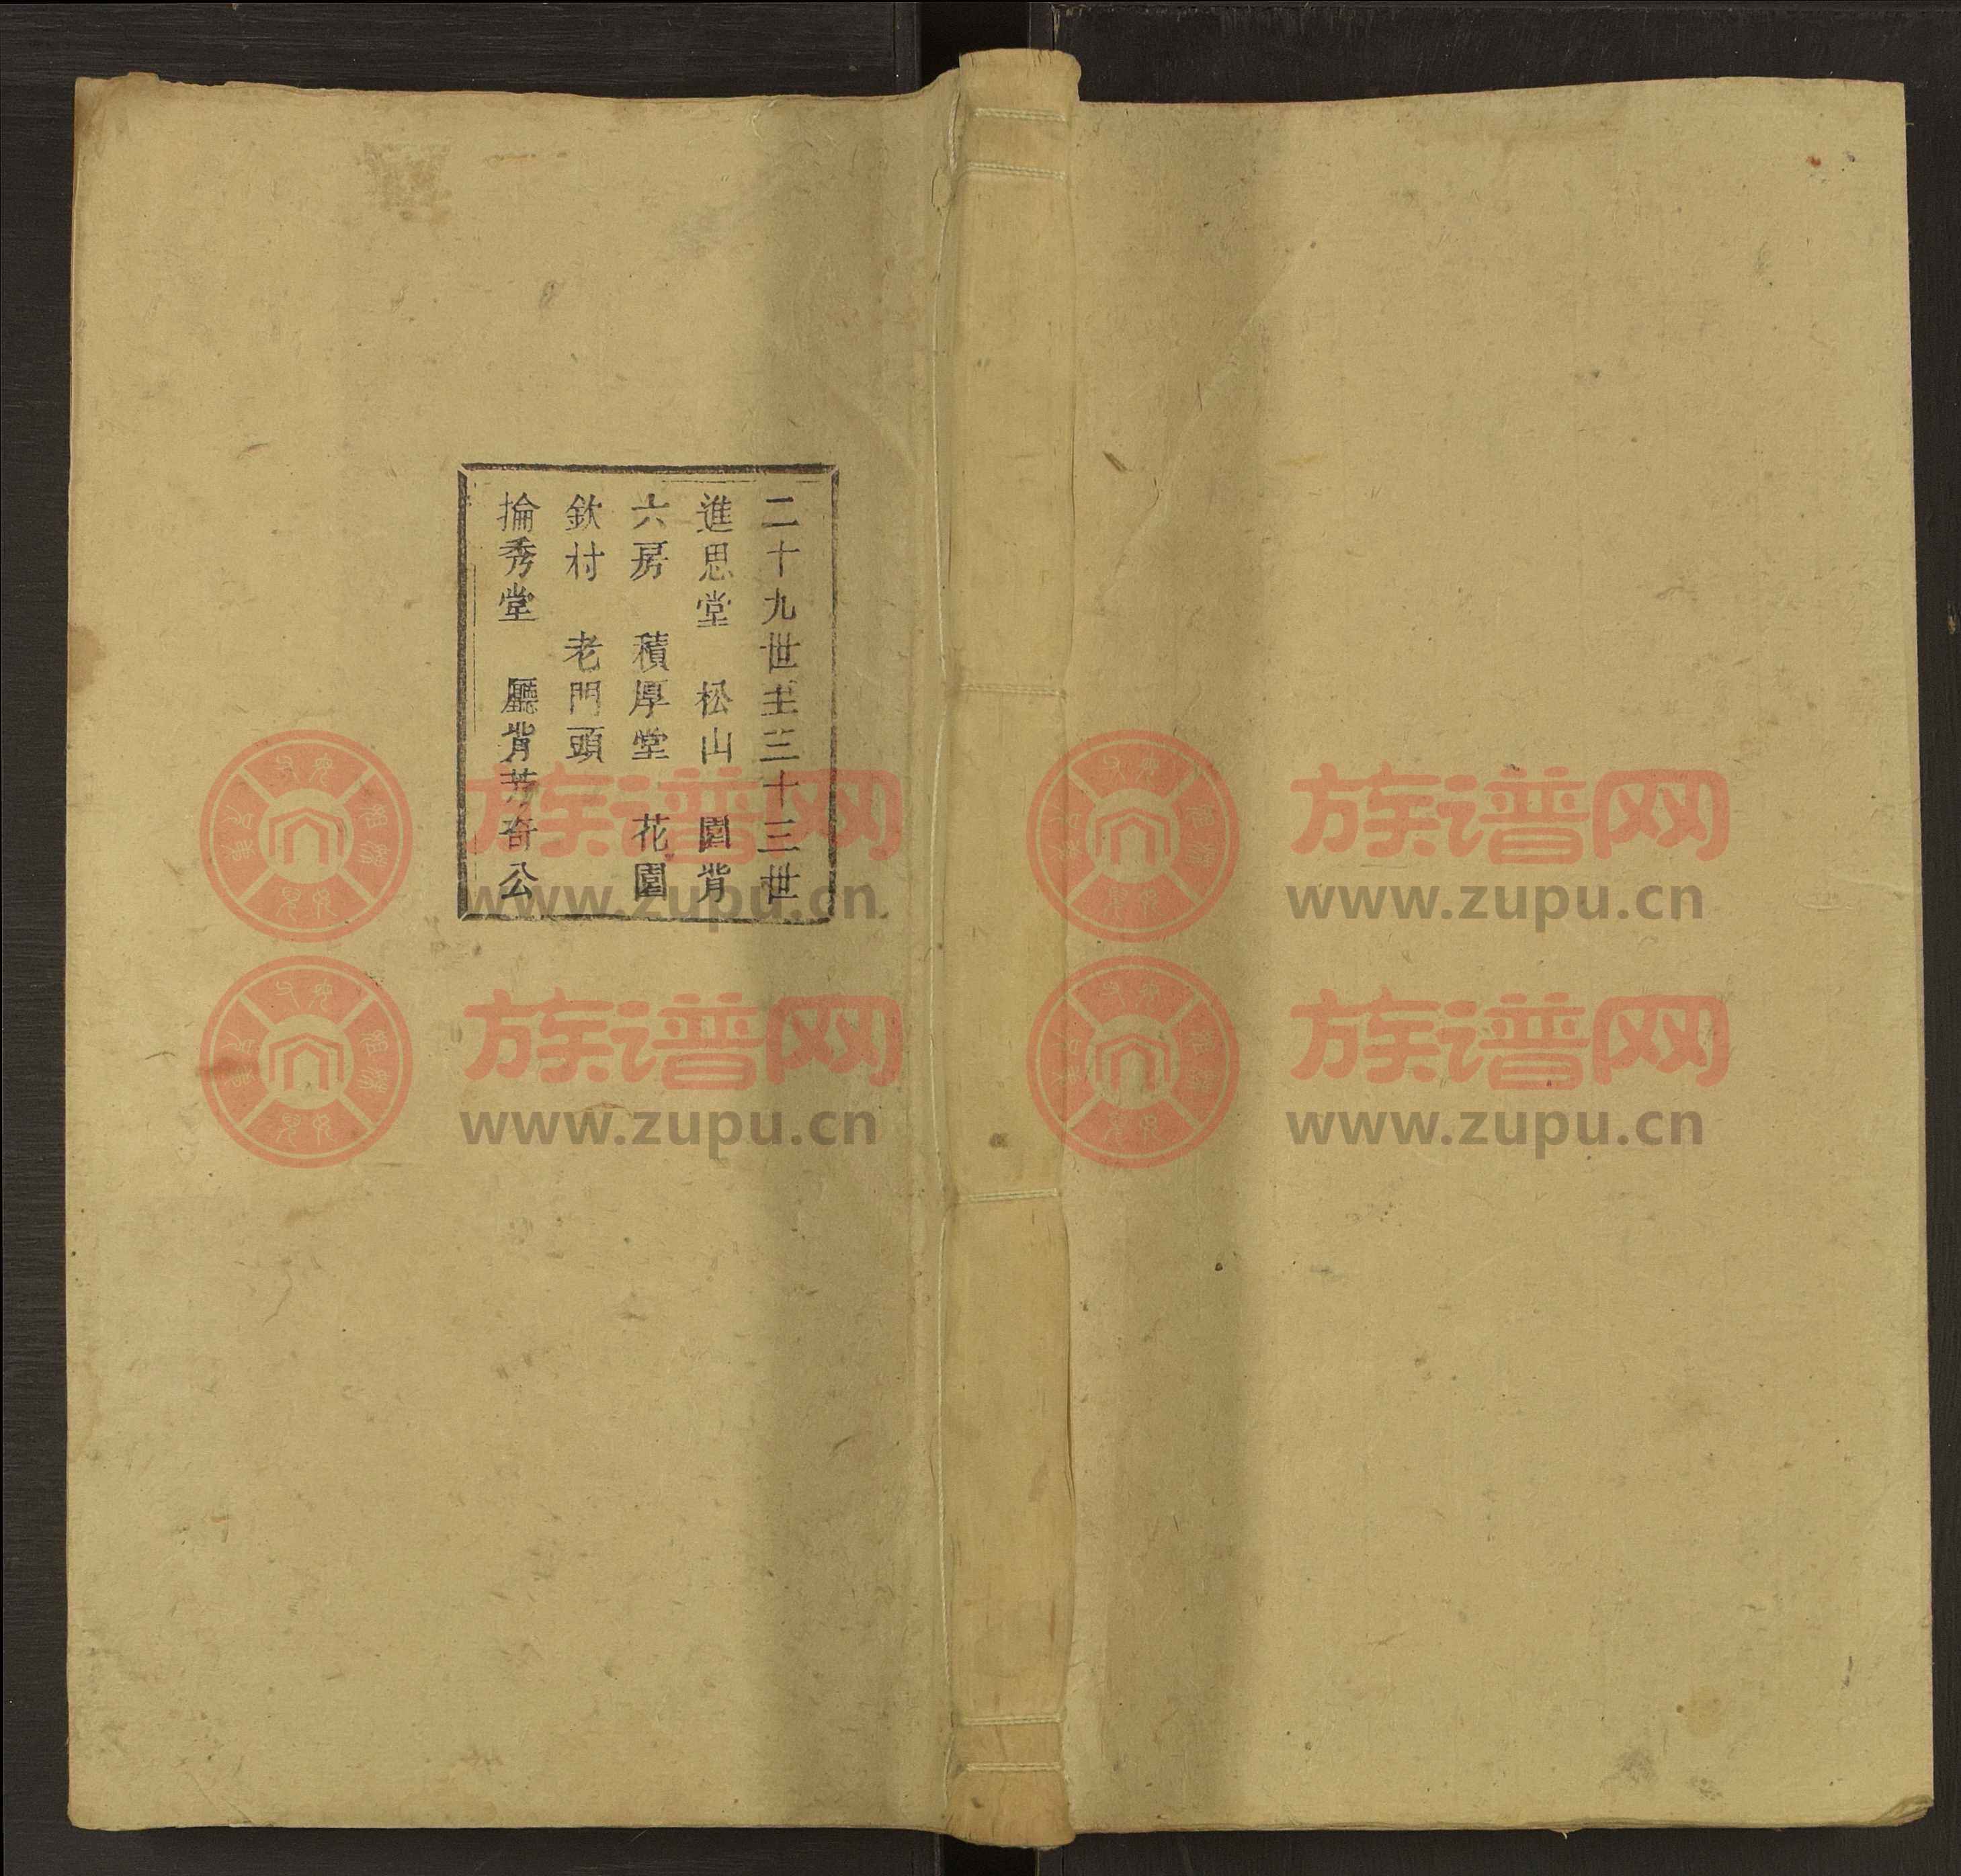 二十九世至三十三世
進思堂 松山 園背
六房 積厚堂 花園
欽村 老門頭
掄秀堂 廳背芳奇公
族谱网
www.zupu.cn
族谱网
www.zupu.cn
族谱网
www.zupu.cn
族谱网
www.zupu.cn